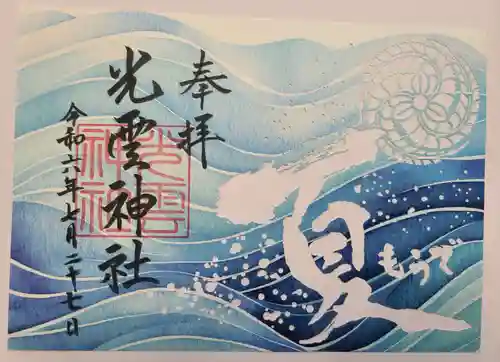 奉拝
光雲神社
令和六年七月二十七日
光雲神社
夏
もうで